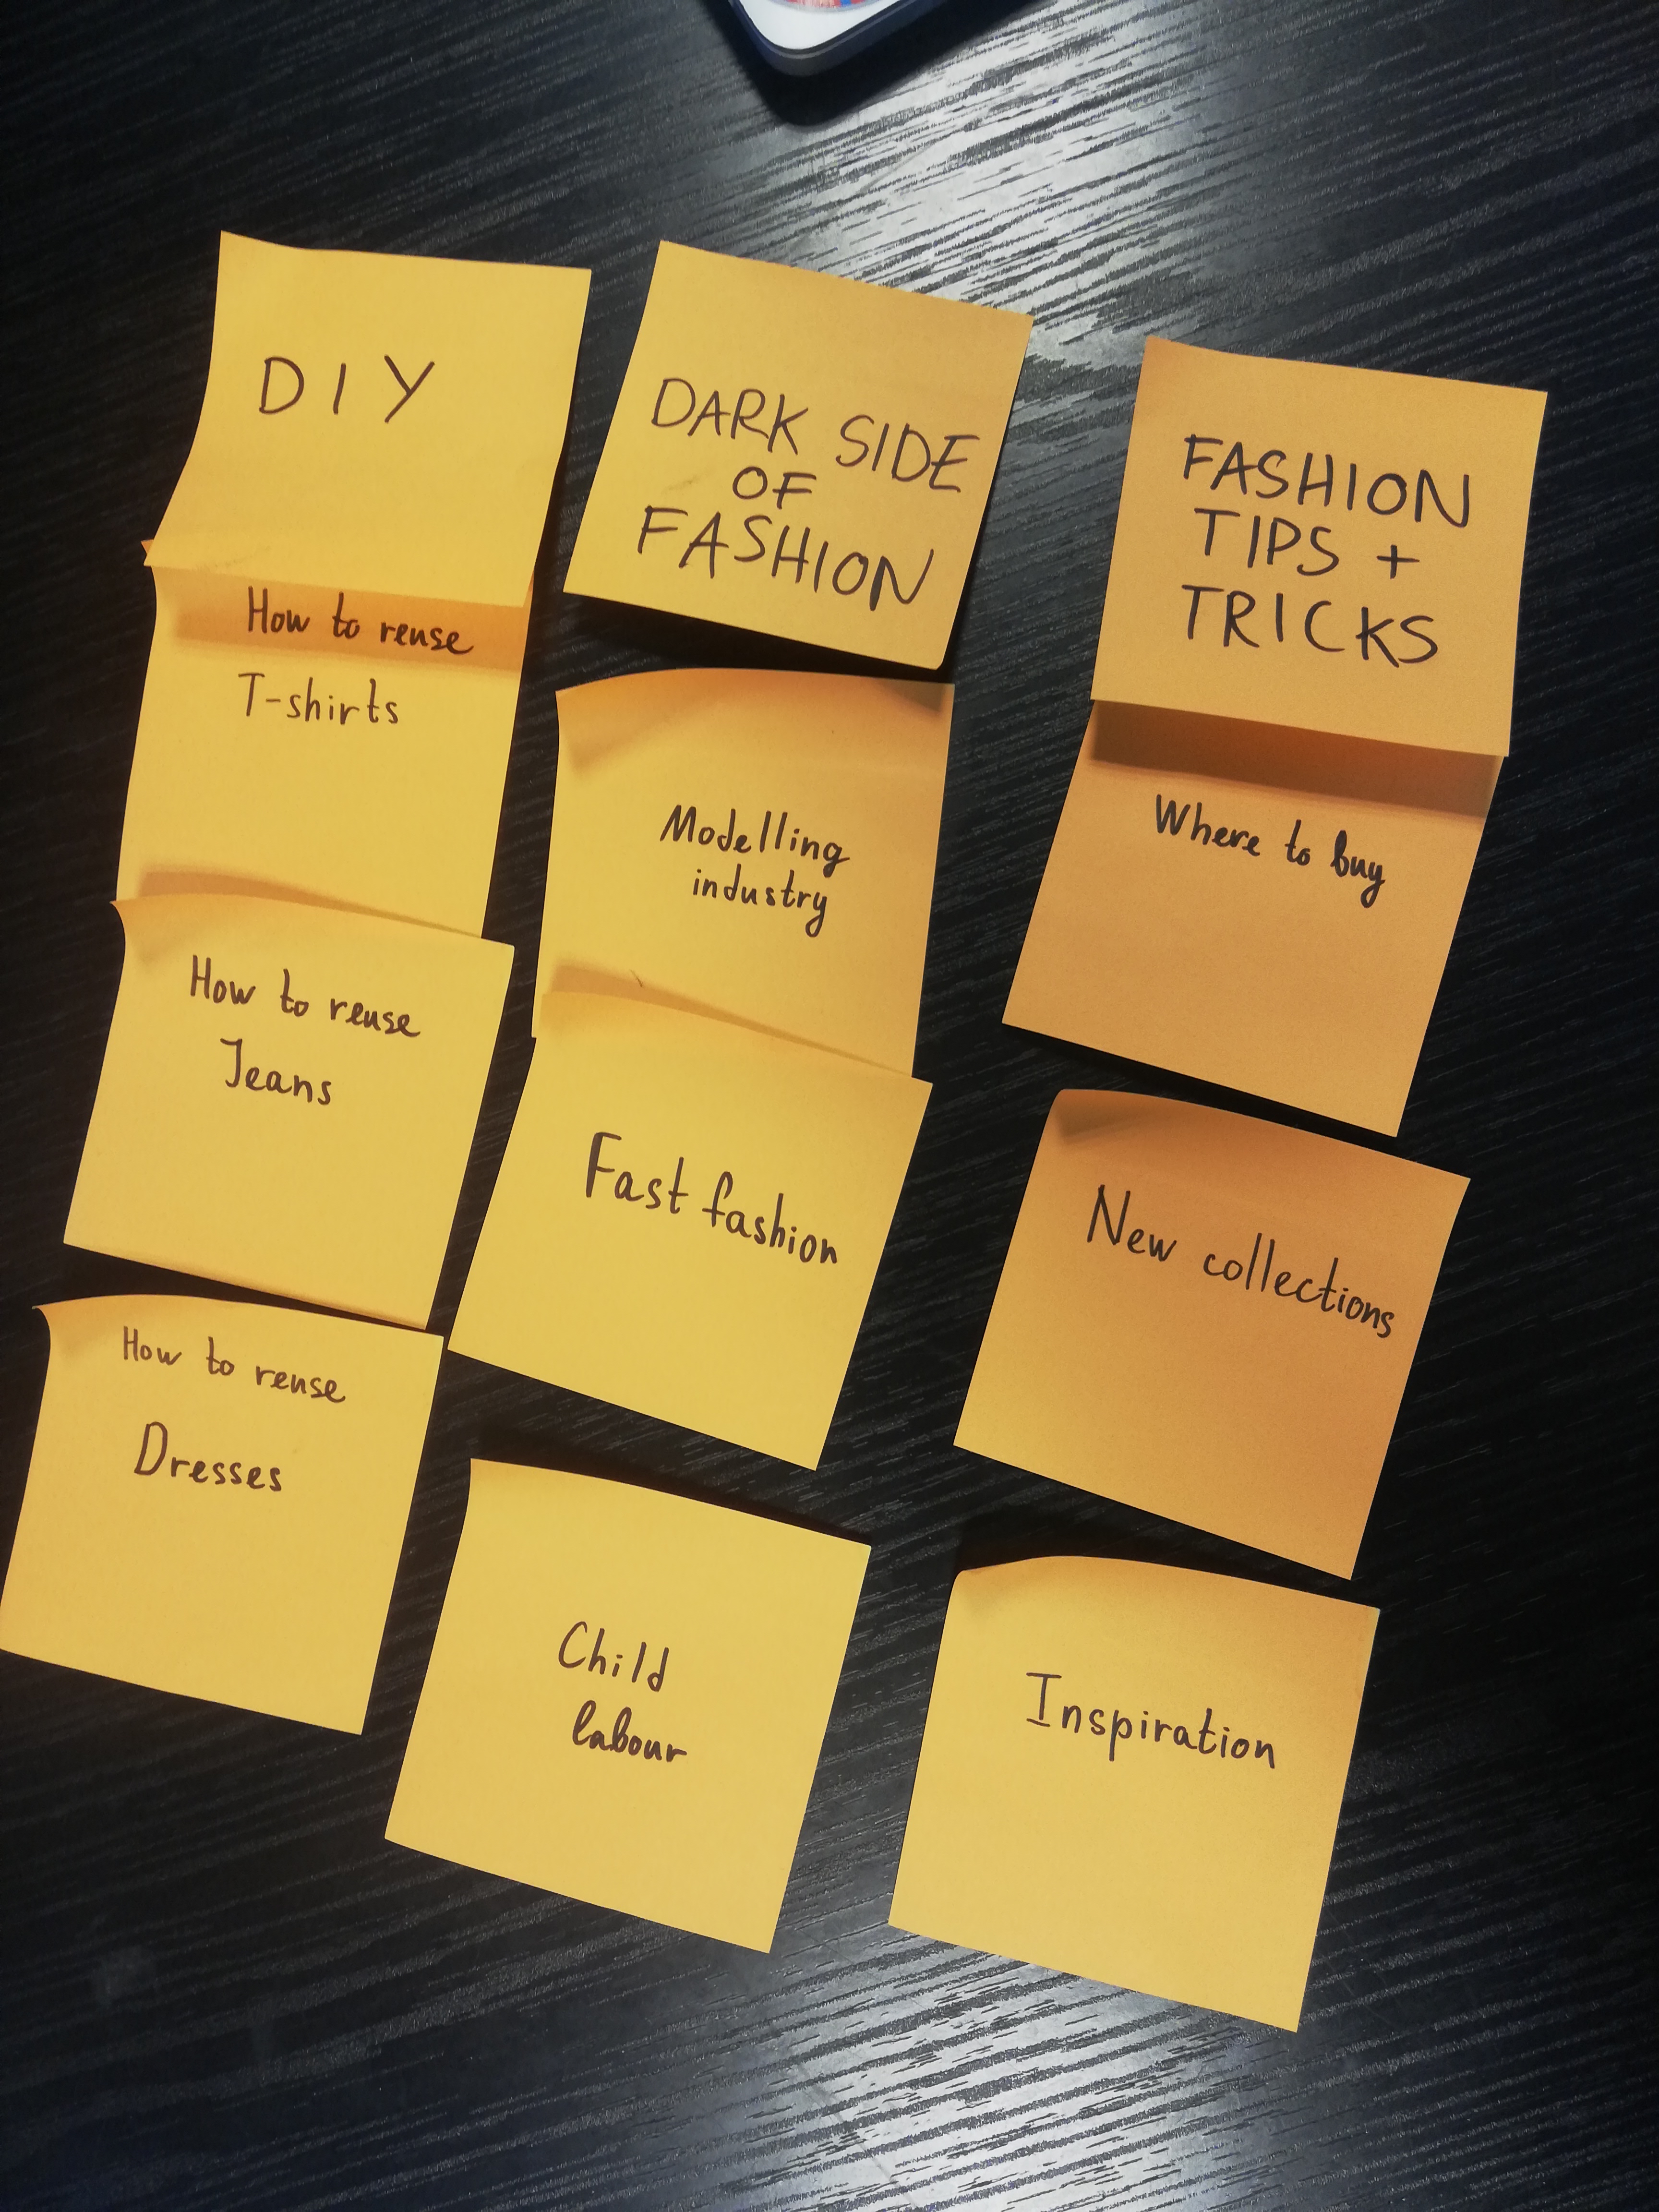 DIY
How to reuse
T-shirts
How to reuse
Jeans
How to reuse
Dresses
DARK SIDE
OF
FASHION
Modelling
industry
Fast fashion
Child
labour
FASHION
TIPS +
TRICKS
Where to buy
New collections
Inspiration